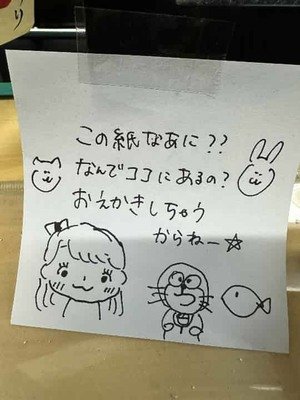 この紙なあに??
なんでココにあるの?
おえかきしちゃう
からねー☆